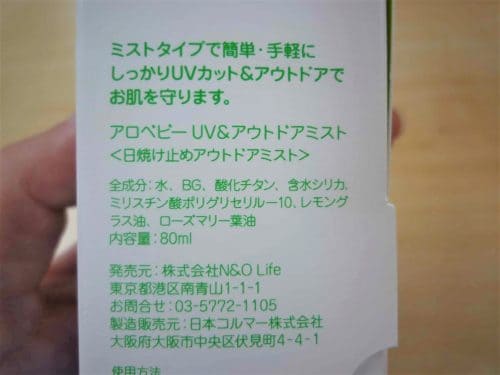 ミストタイプで簡単・手軽に
しっかりUVカット&アウトドアで
お肌を守ります。
アロベビー UV&アウトドアミスト
<日焼け止めアウトドアミスト>
全成分:水、BG、酸化チタン、含水シリカ、
ミリスチン酸ポリグリセリル-10、レモング
ラス油、ローズマリー葉油
内容量:80ml
発売元:株式会社N&O Life
東京都港区南青山1-1-1
お問合せ:03-5772-1105
製造販売元:日本コルマー株式会社
大阪府大阪市中央区伏見町4-4-1
使用方法